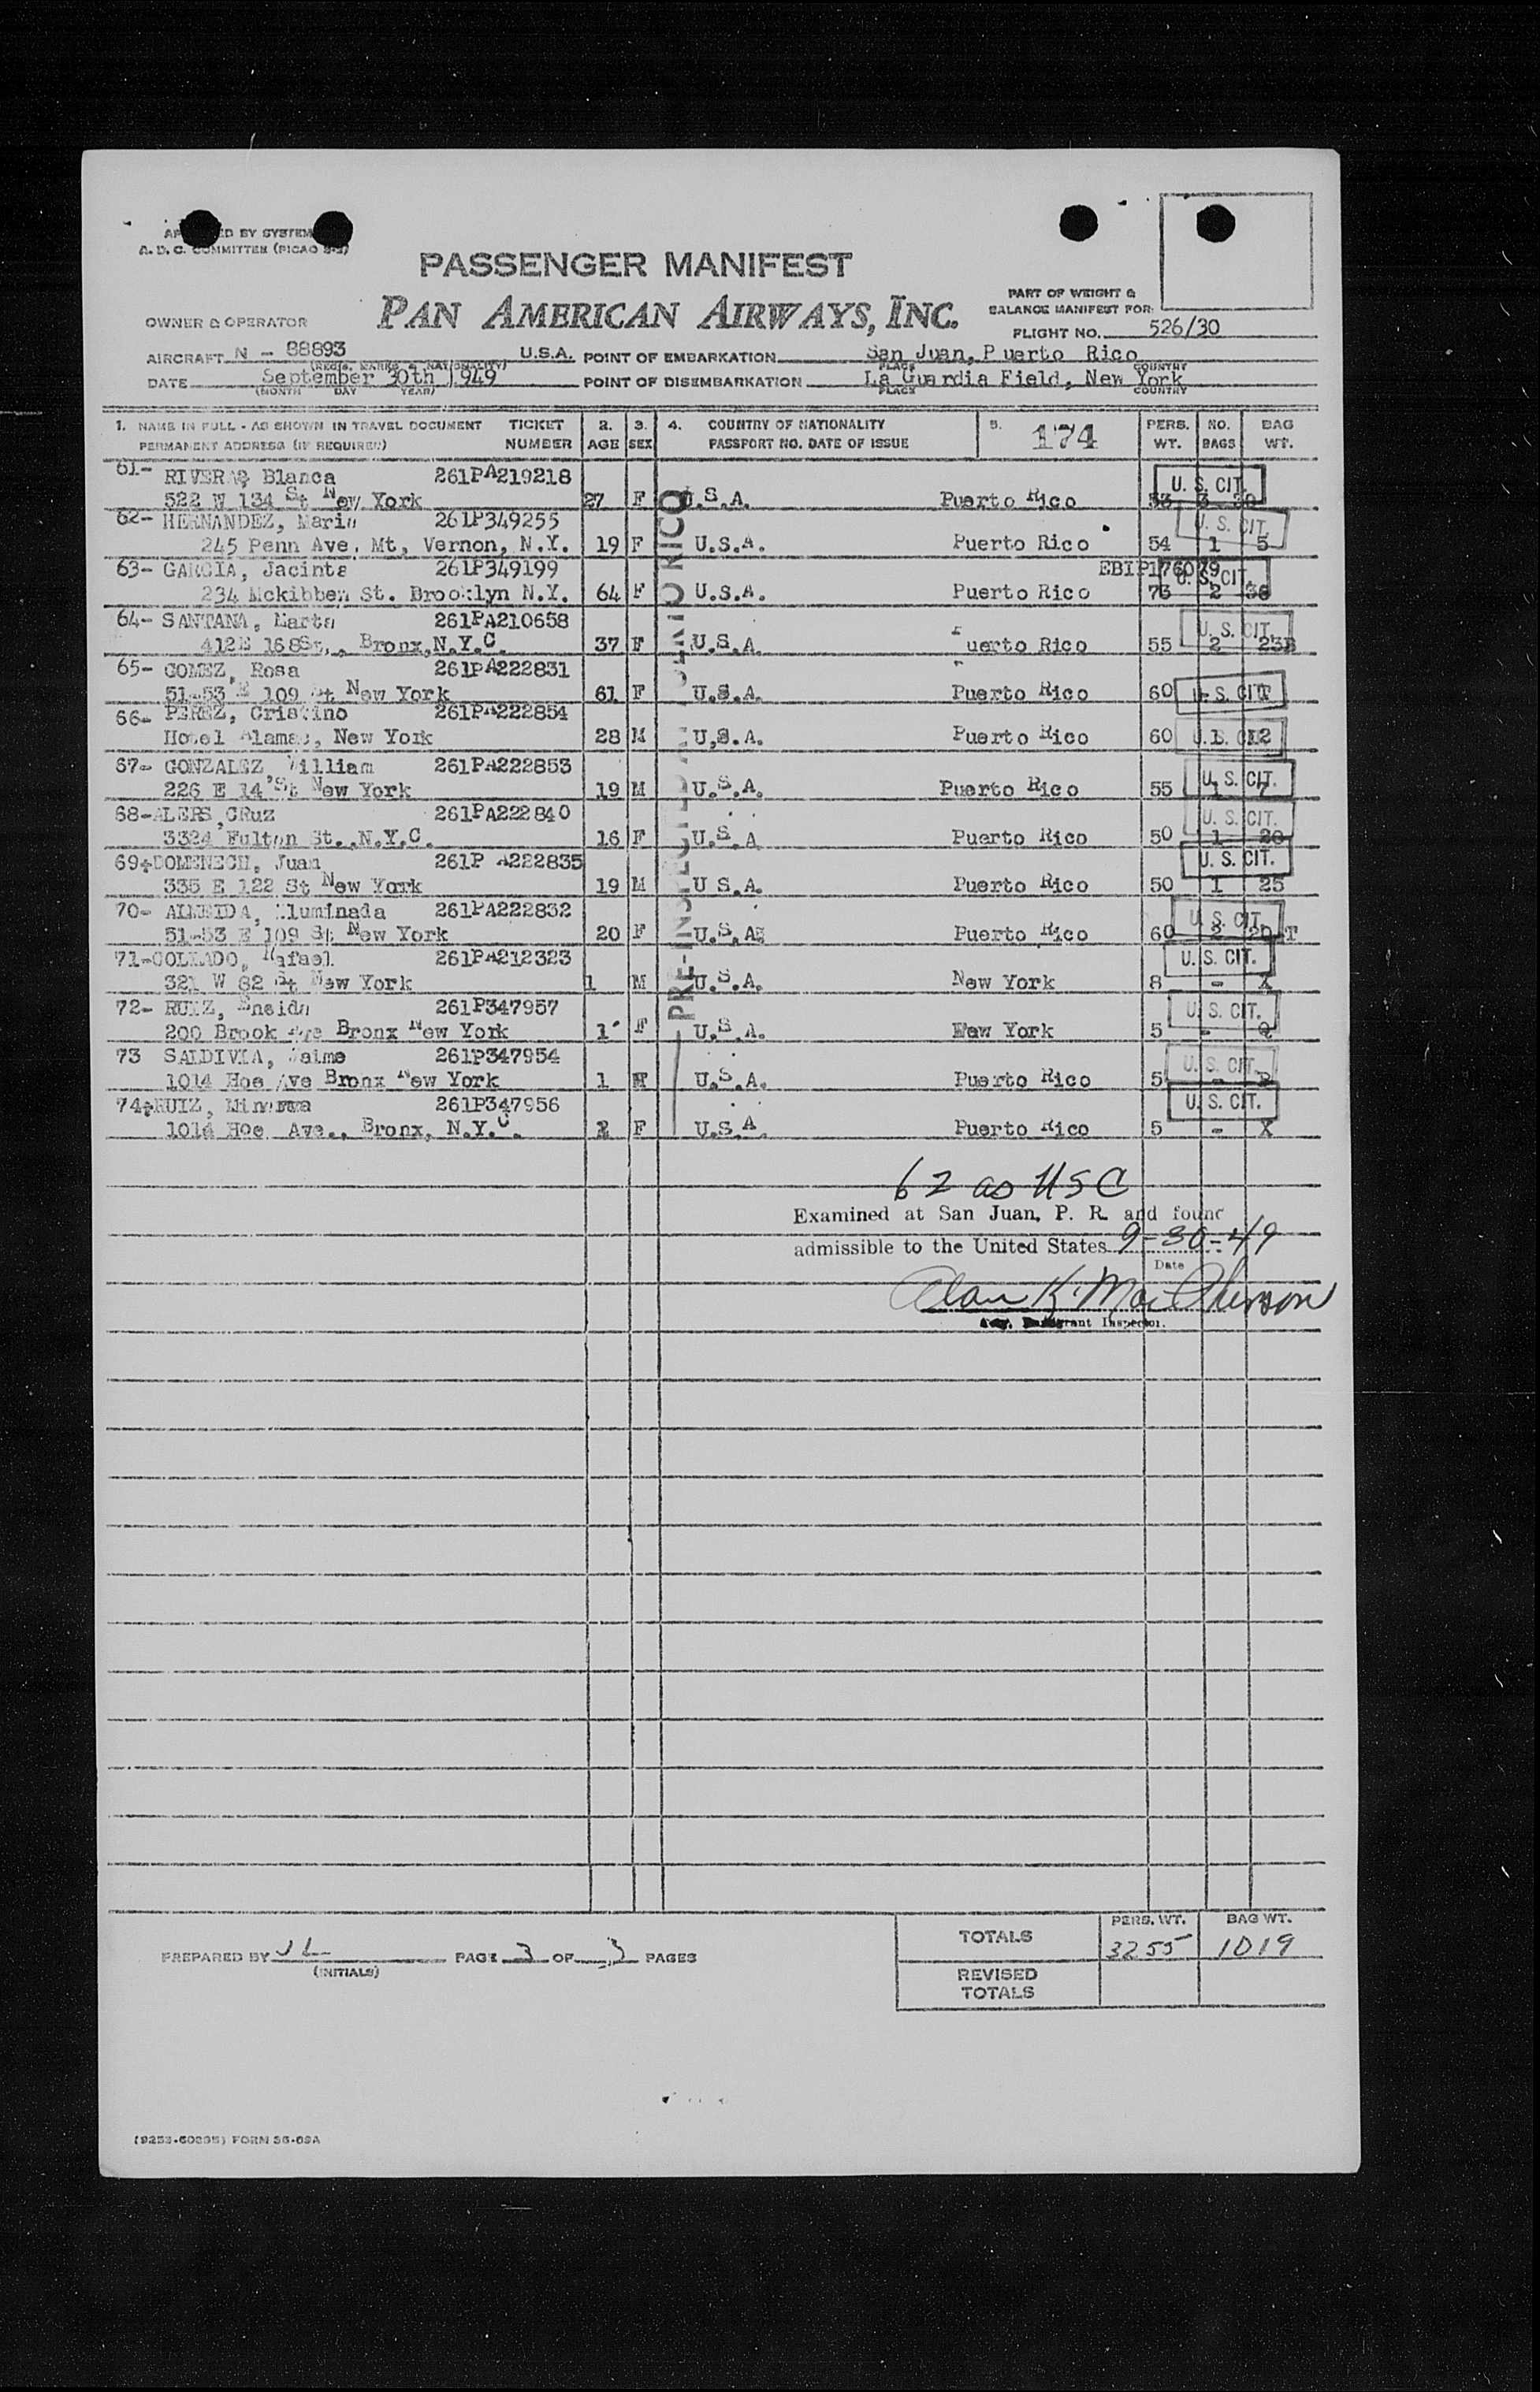 BY SYSTEM
A. D. C. COMMITTEE (PICAO
PASSENGER MANIFEST
PAN AMERICAN AIRWAYS, INC.
PART OF WEIGHT &
BALANCE MANIFEST FOR:
OWNER & OPERATOR
FLIGHT NO. 526/30
AIRCRAFT N - 88893 U.S.A. POINT OF EMBARKATION San Juan, Puerto Rico
(REG'S. MARKS & NATIONALITY) PLACE COUNTRY
DATE September 30th 1949 POINT OF DISEMBARKATION La Guardia Field, New York
(MONTH DAY YEAR) PLACE COUNTRY
1. NAME IN FULL - AS SHOWN IN TRAVEL DOCUMENT TICKET 2. 3. 4. COUNTRY OF NATIONALITY 5. 174 PERS. NO. BAG
PERMANENT ADDRESS (IF REQUIRED) NUMBER AGE SEX PASSPORT NO. DATE OF ISSUE WT. BAGS WT.
61- RIVERA, Blanca 261PA219218 U. S. CIT.
522 W 134 St New York 27 F U.S.A. Puerto Rico 53 3 30
62- HERNANDEZ, Maria 261P349255 U. S. CIT.
245 Penn Ave. Mt, Vernon, N.Y. 19 F U.S.A. Puerto Rico 54 1 5
63- GARCIA, Jacinta 261P349199 EBIP176079 U. S. CIT.
234 Mckibben St. Brooklyn N.Y. 64 F U.S.A. Puerto Rico 73 2 38
64- SANTANA, Marta 261PA210658 U. S. CIT.
412E 168St., Bronx,N.Y.C. 37 F U.S.A. Puerto Rico 55 2 23B
65- GOMEZ, Rosa 261PA222831
51-53 E 109 St New York 61 F U.S.A. Puerto Rico 60 U. S. CIT
66- PEREZ, Cristino 261PA222854
Hotel Alamac, New York 28 M U,S.A. Puerto Rico 60 U. S. CIT
67- GONZALEZ William 261PA222853 U. S. CIT.
226 E 14 St New York 19 M U.S.A. Puerto Rico 55 1 7
68-ALERS,CRuz 261PA222840 U. S. CIT.
3324 Fulton St.,N.Y.C. 16 F U.S.A Puerto Rico 50 1 20
69-DOMENECH, Juan 261P A222835 U. S. CIT.
335 E 122 St New York 19 M U S.A. Puerto Rico 50 1 25
70- ALMEIDA, Iluminada 261PA222832 U. S. CIT.
51-53 E 109 St New York 20 F U.S.A Puerto Rico 60 2 20 T
71-COLLADO, Rafael 261PA212323 U. S. CIT.
321 W 82 St New York 1 M U.S.A. New York 8 - X
72- RUIZ, Eneida 261P347957 U. S. CIT.
200 Brook Ave Bronx New York 1 F U.S.A. New York 5 -
73 SALDIVIA, Jaime 261P347954 U. S. CIT.
1014 Hoe Ave Bronx New York 1 M U.S.A. Puerto Rico 5 -
74-RUIZ, Minerva 261P347956 U. S. CIT.
1014 Hoe Ave., Bronx, N.Y.C. 2 F U.S.A. Puerto Rico 5 - X
62 as USC
Examined at San Juan, P. R. and found
admissible to the United States 9-30-49
Date
Alan K. MacPherson
Immigrant Inspector.
TOTALS PERS. WT. BAG WT.
3255 1019
PREPARED BY JL PAGE 3 OF 3 PAGES
(INITIALS)
REVISED
TOTALS
FORM 36-09A